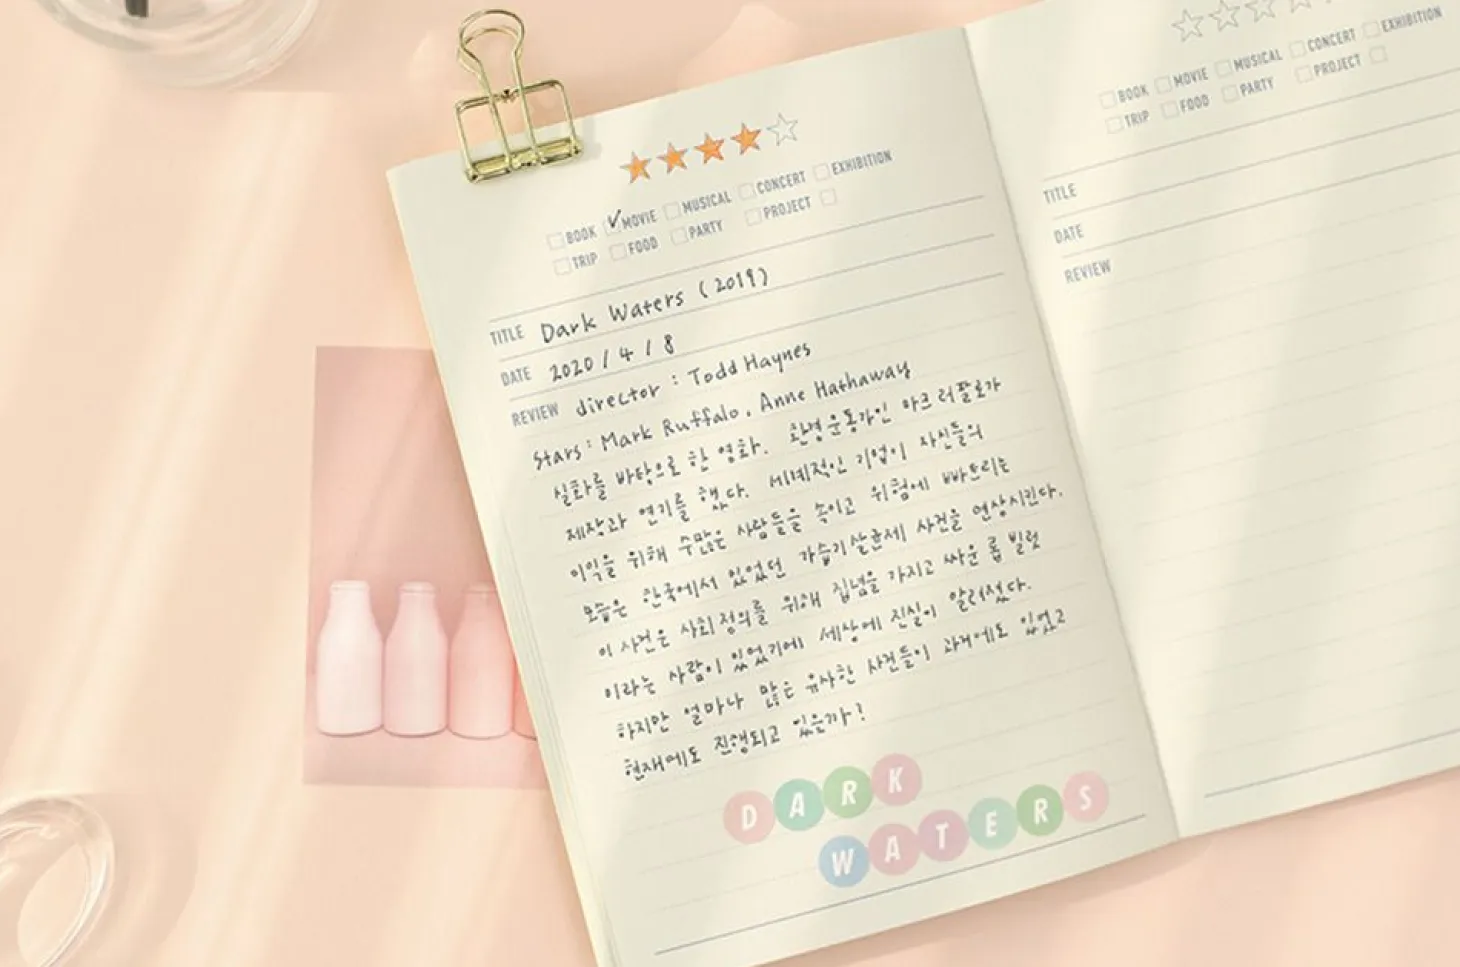 BOOK MOVIE MUSICAL CONCERT EXHIBITION
TRIP FOOD PARTY PROJECT
TITLE Dark Waters (2019)
DATE 2020 / 4 / 8
REVIEW director : Todd Haynes
stars : Mark Ruffalo, Anne Hathaway
실화를 바탕으로 한 영화. 환경운동가인 마크 러팔로가
제작과 연기를 했다. 세계적인 기업이 자신들의
이익을 위해 수많은 사람들을 속이고 위험에 빠뜨리는
모습은 한국에서 있었던 가습기살균제 사건을 연상시킨다.
이 사건은 사회정의를 위해 집념을 가지고 싸운 롭 빌럿
이라는 사람이 있었기에 세상에 진실이 알려졌다.
하지만 얼마나 많은 유사한 사건들이 과거에도 있었고
현재에도 진행되고 있을까?
DARK
WATERS
BOOK MOVIE MUSICAL CONCERT EXHIBITION
TRIP FOOD PARTY PROJECT
TITLE
DATE
REVIEW